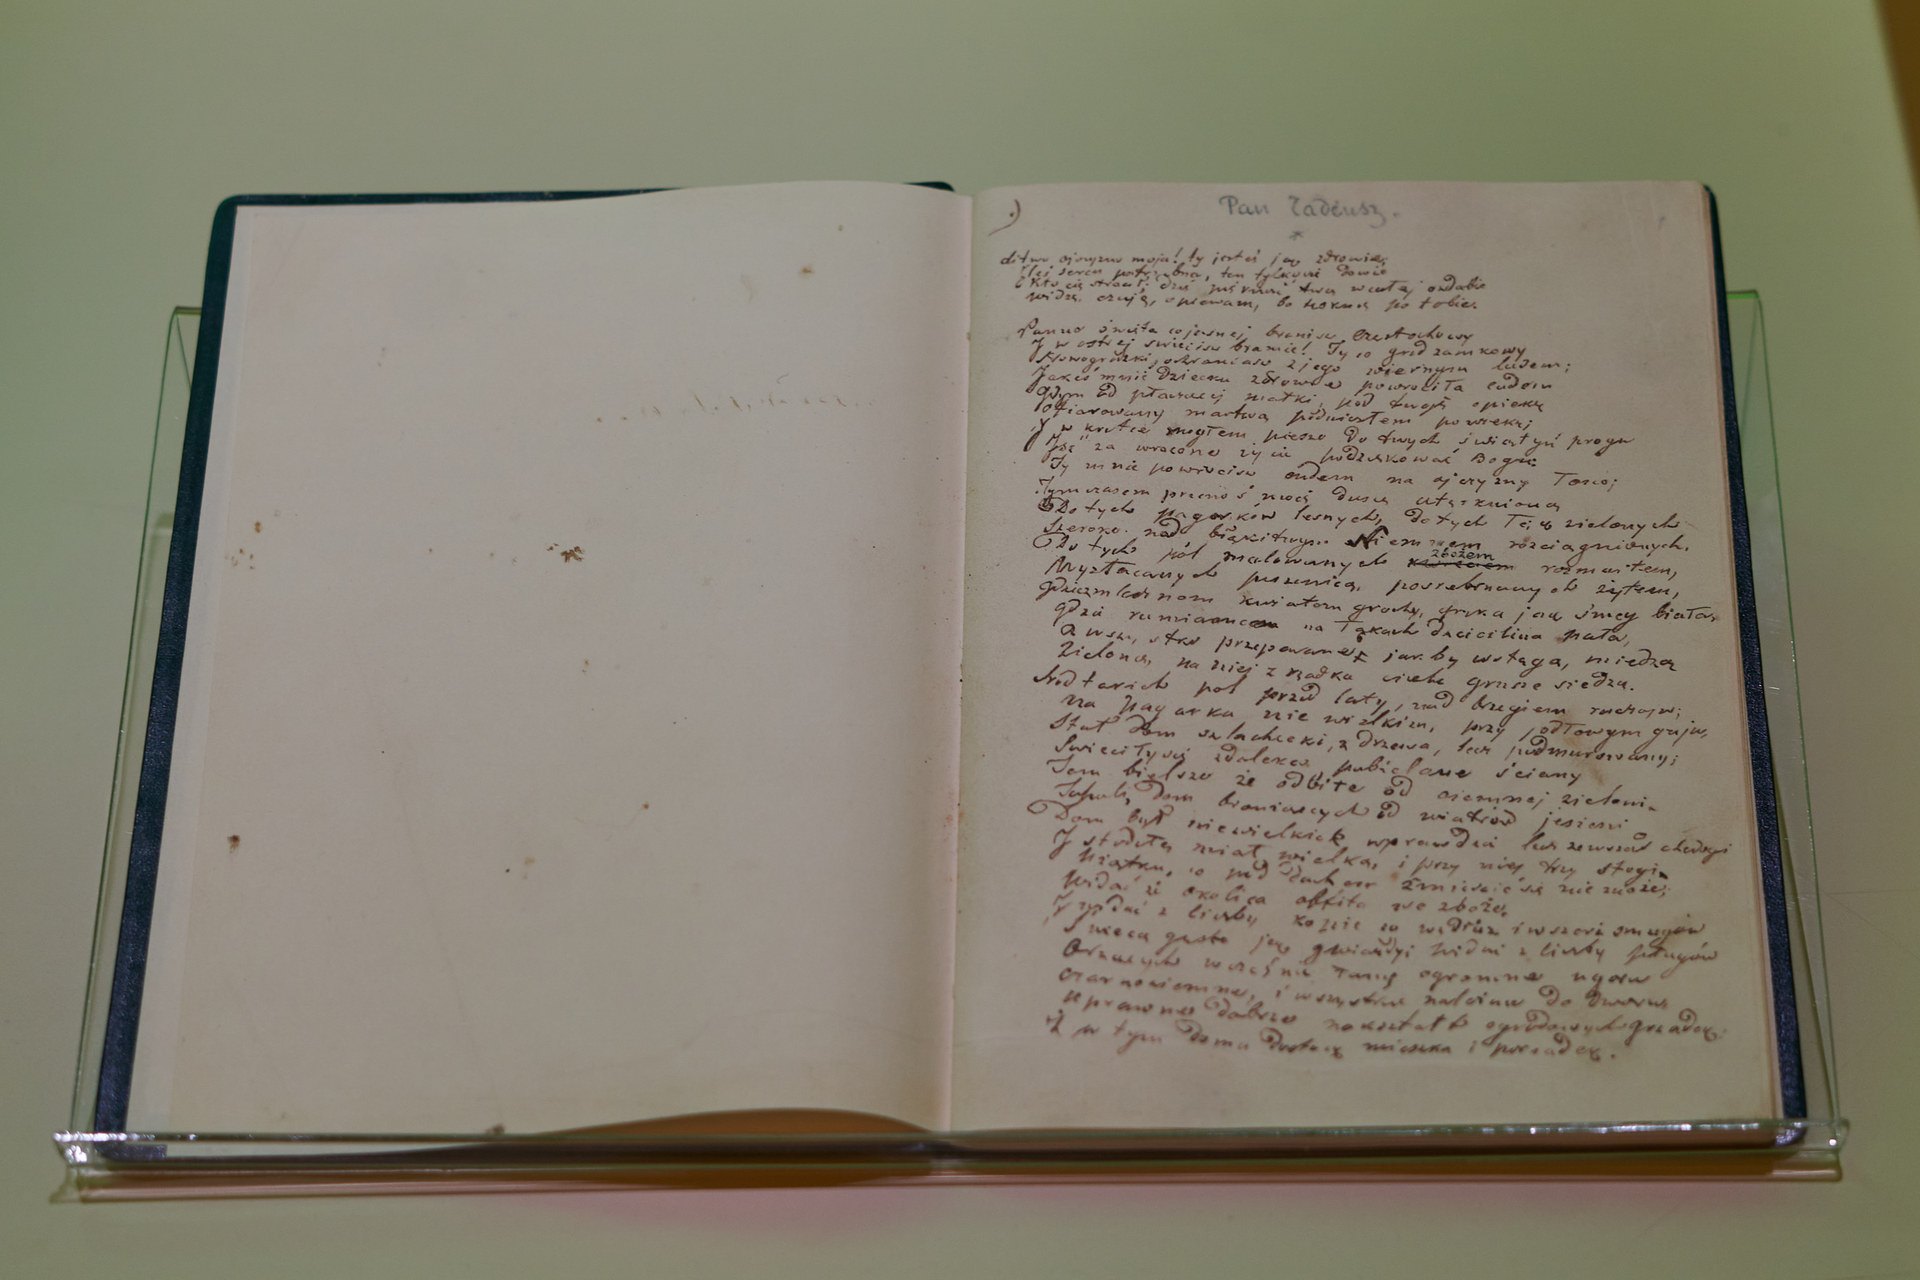 Pan Tadeusz.
Litwo ojczyzno moja! ty jesteś jak zdrowie,
Ileś serca potrzebna, ten tylko się dowie
Kto cię stracił; dziś piękność twą w całej ozdobie
Widzę, czuję, opiewam, bo tęsknię po tobie.
Panno święta co jasnej bronisz Częstochowy
I w ostrej świecisz bramie! Ty co gród zamkowy
Nowogródzki, ochraniasz z jego wiernym ludem;
Jakeś mnie dziecko zdrowie powróciła cudem
Gdym od płaczącej matki, pod twoją opiekę
Ofiarowany martwą podniosłem powiekę;
I w krótce mogłem pieszo do twych świątyń progu
Iść za wrócone życie podziękować Bogu:
Ty mnie powrócisz cudem na ojczyzny łono;
Tymczasem przenoś moją duszę utęsknioną
Do tych pagórków leśnych, do tych łąk zielonych
Szeroko nad błękitnym Niemnem rozciągnionych.
zbożem
Do tych pól malowanych rozmaitem,
Wyzłacanych pszenicą, posrebrzanych żytem,
gdzie kwiatem grochy, gryka jak śnieg biała,
gdzie rumiancem na łąkach dziecielina pała,
A wszystko przepasane jakby wstęgą, miedzą
Zieloną, na niej z rzadka ciche grusze siedzą.
Śród takich pol przed laty, nad brzegiem ruczaju;
Na pagorku nie wielkim, przy gaju,
Stał Dom szlachecki, z drzewa, lecz podmurowany;
Świeciły się zdaleka pobielane ściany
Tem bielsze że odbite od ciemnej zieleni
Topoli, broniących od wiatrów jesieni
Dom był niewielki wprawdzie lecz zewsząd chędogi
I stodołę miał wielką, i przy niej trzy stogi
co pod dachem zmieścić się nie może;
Widać że okolica obfita we zboże,
I widać z liczby kopic co wzdłuż i wszerz smugów
Świecą gęsto jak gwiazdy widać z liczby pługów
Orzących wcześnie łany ogromne ugoru
czarnoziemne, i wszystkie należne do dworu
Uprawne dobrze nakształt ogrodowych grządek:
I w tym domu dostatek mieszka i porządek.